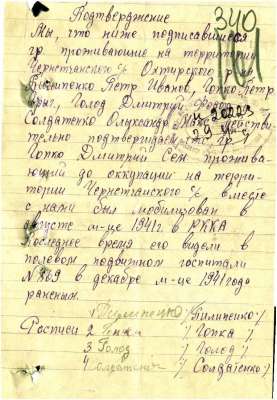 Подтверждение
340
Мы, что ниже подписавшиеся
гр. проживающие на территории
Чернетчанского с/с Охтирского р-на
Пилипенко Петр Иванов, Гопко Петр
Голод Дмитрий Федор
Солдатенко Олександр
тельно подтверждаем что гр.
Гопко Дмитрий Сем. прожива-
ющий до оккупации на терри-
тории Чернетчанского с/с вместе
с нами был мобилизован в
августе м-це 1941 г в РККА
Последнее время его видели в
полевом подвижном госпитали
в декабре м-це 1941 года
раненым.
Пилипенко /Пилипенко/.
Росписи 2 Гопка /Гопка/.
3 Голод /Голод/.
4 Солдатенко /Солдатенко/.